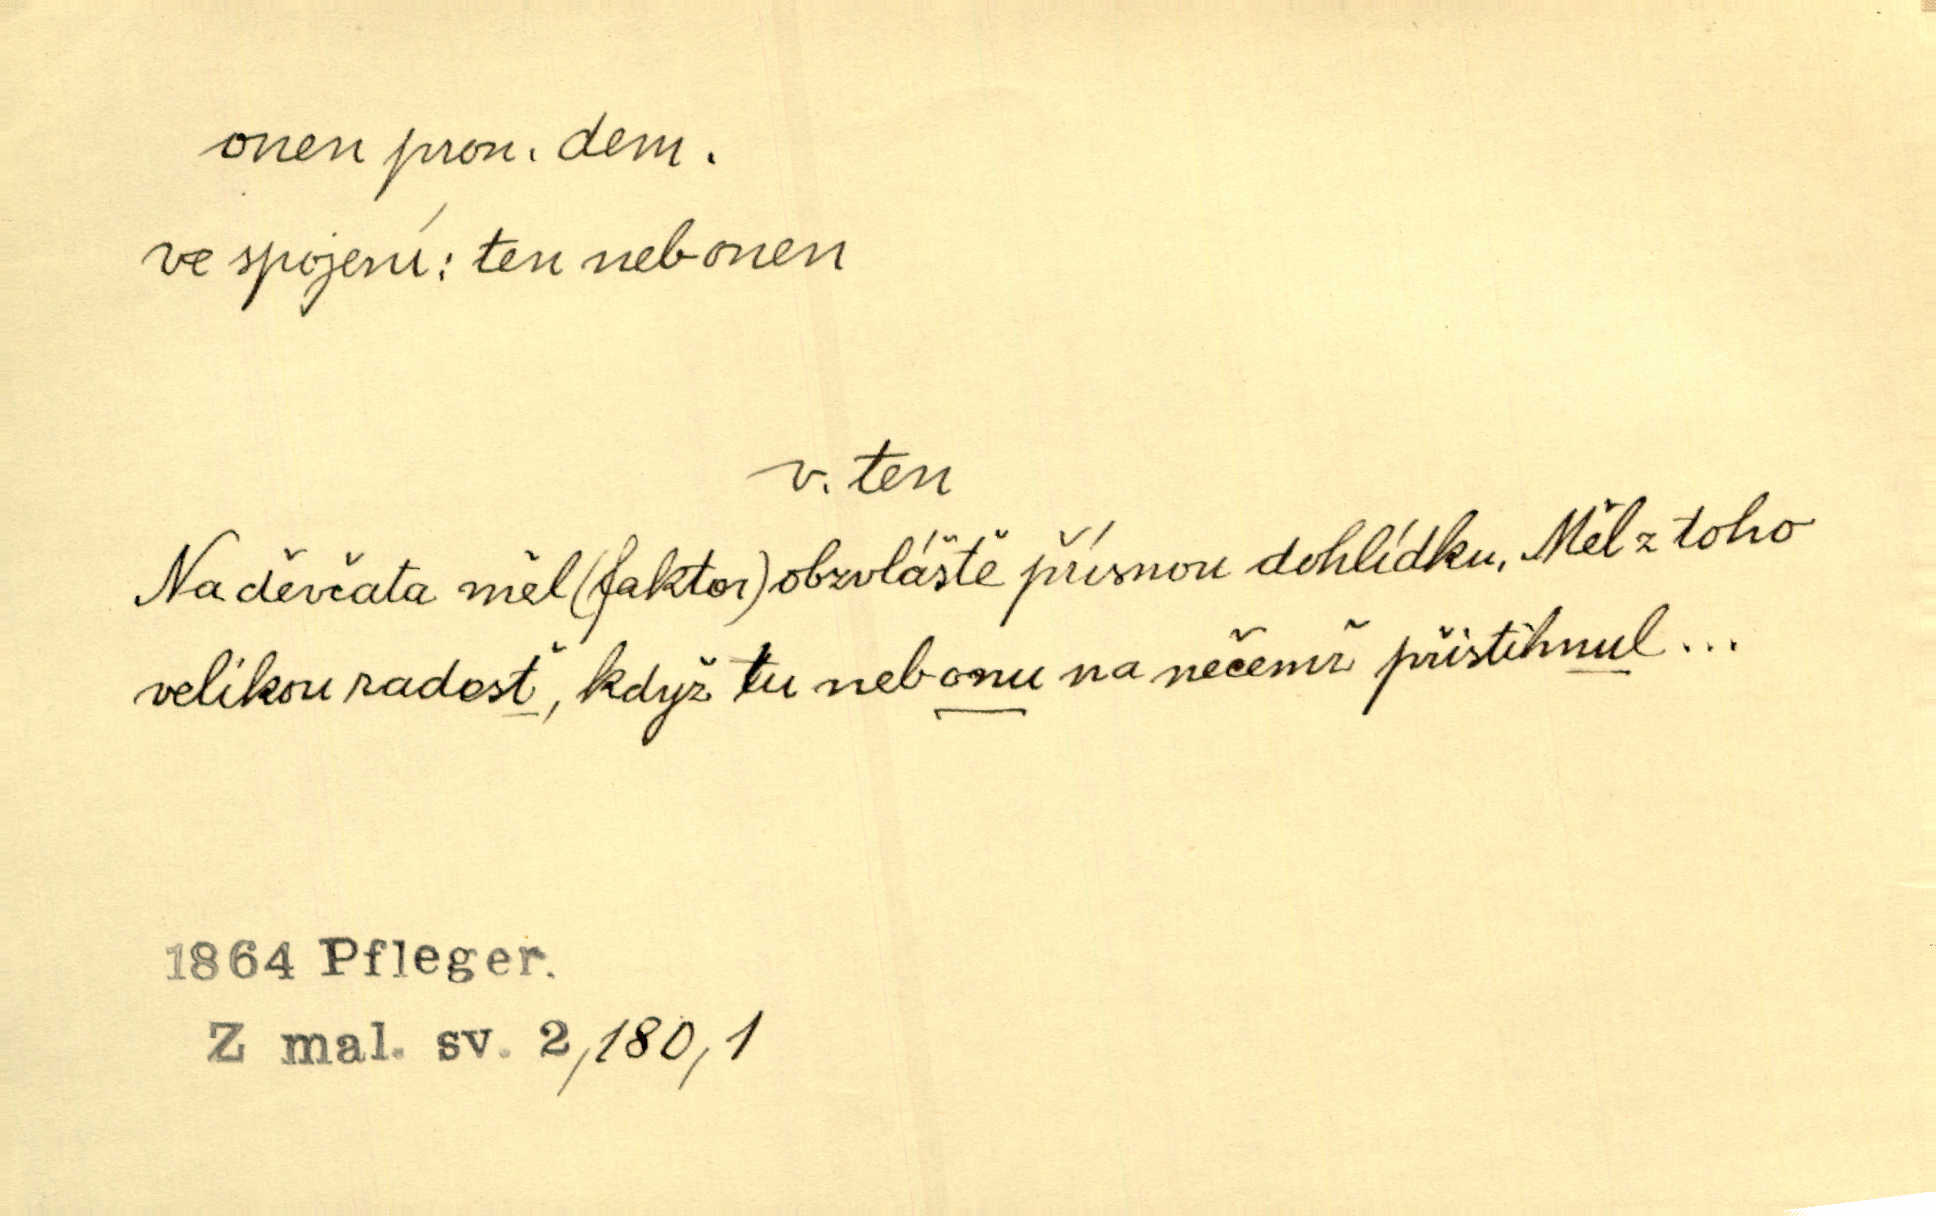 onen pron. dem.
ve spojení: ten neb onen
v. ten
Na děvčata měl (faktor) obzvláště přísnou dohlídku. Měl z toho
velikou radosť, když tu neb onu na něčemž přistihnul...
1864 Pfleger.
Z mal. sv. 2,180,1